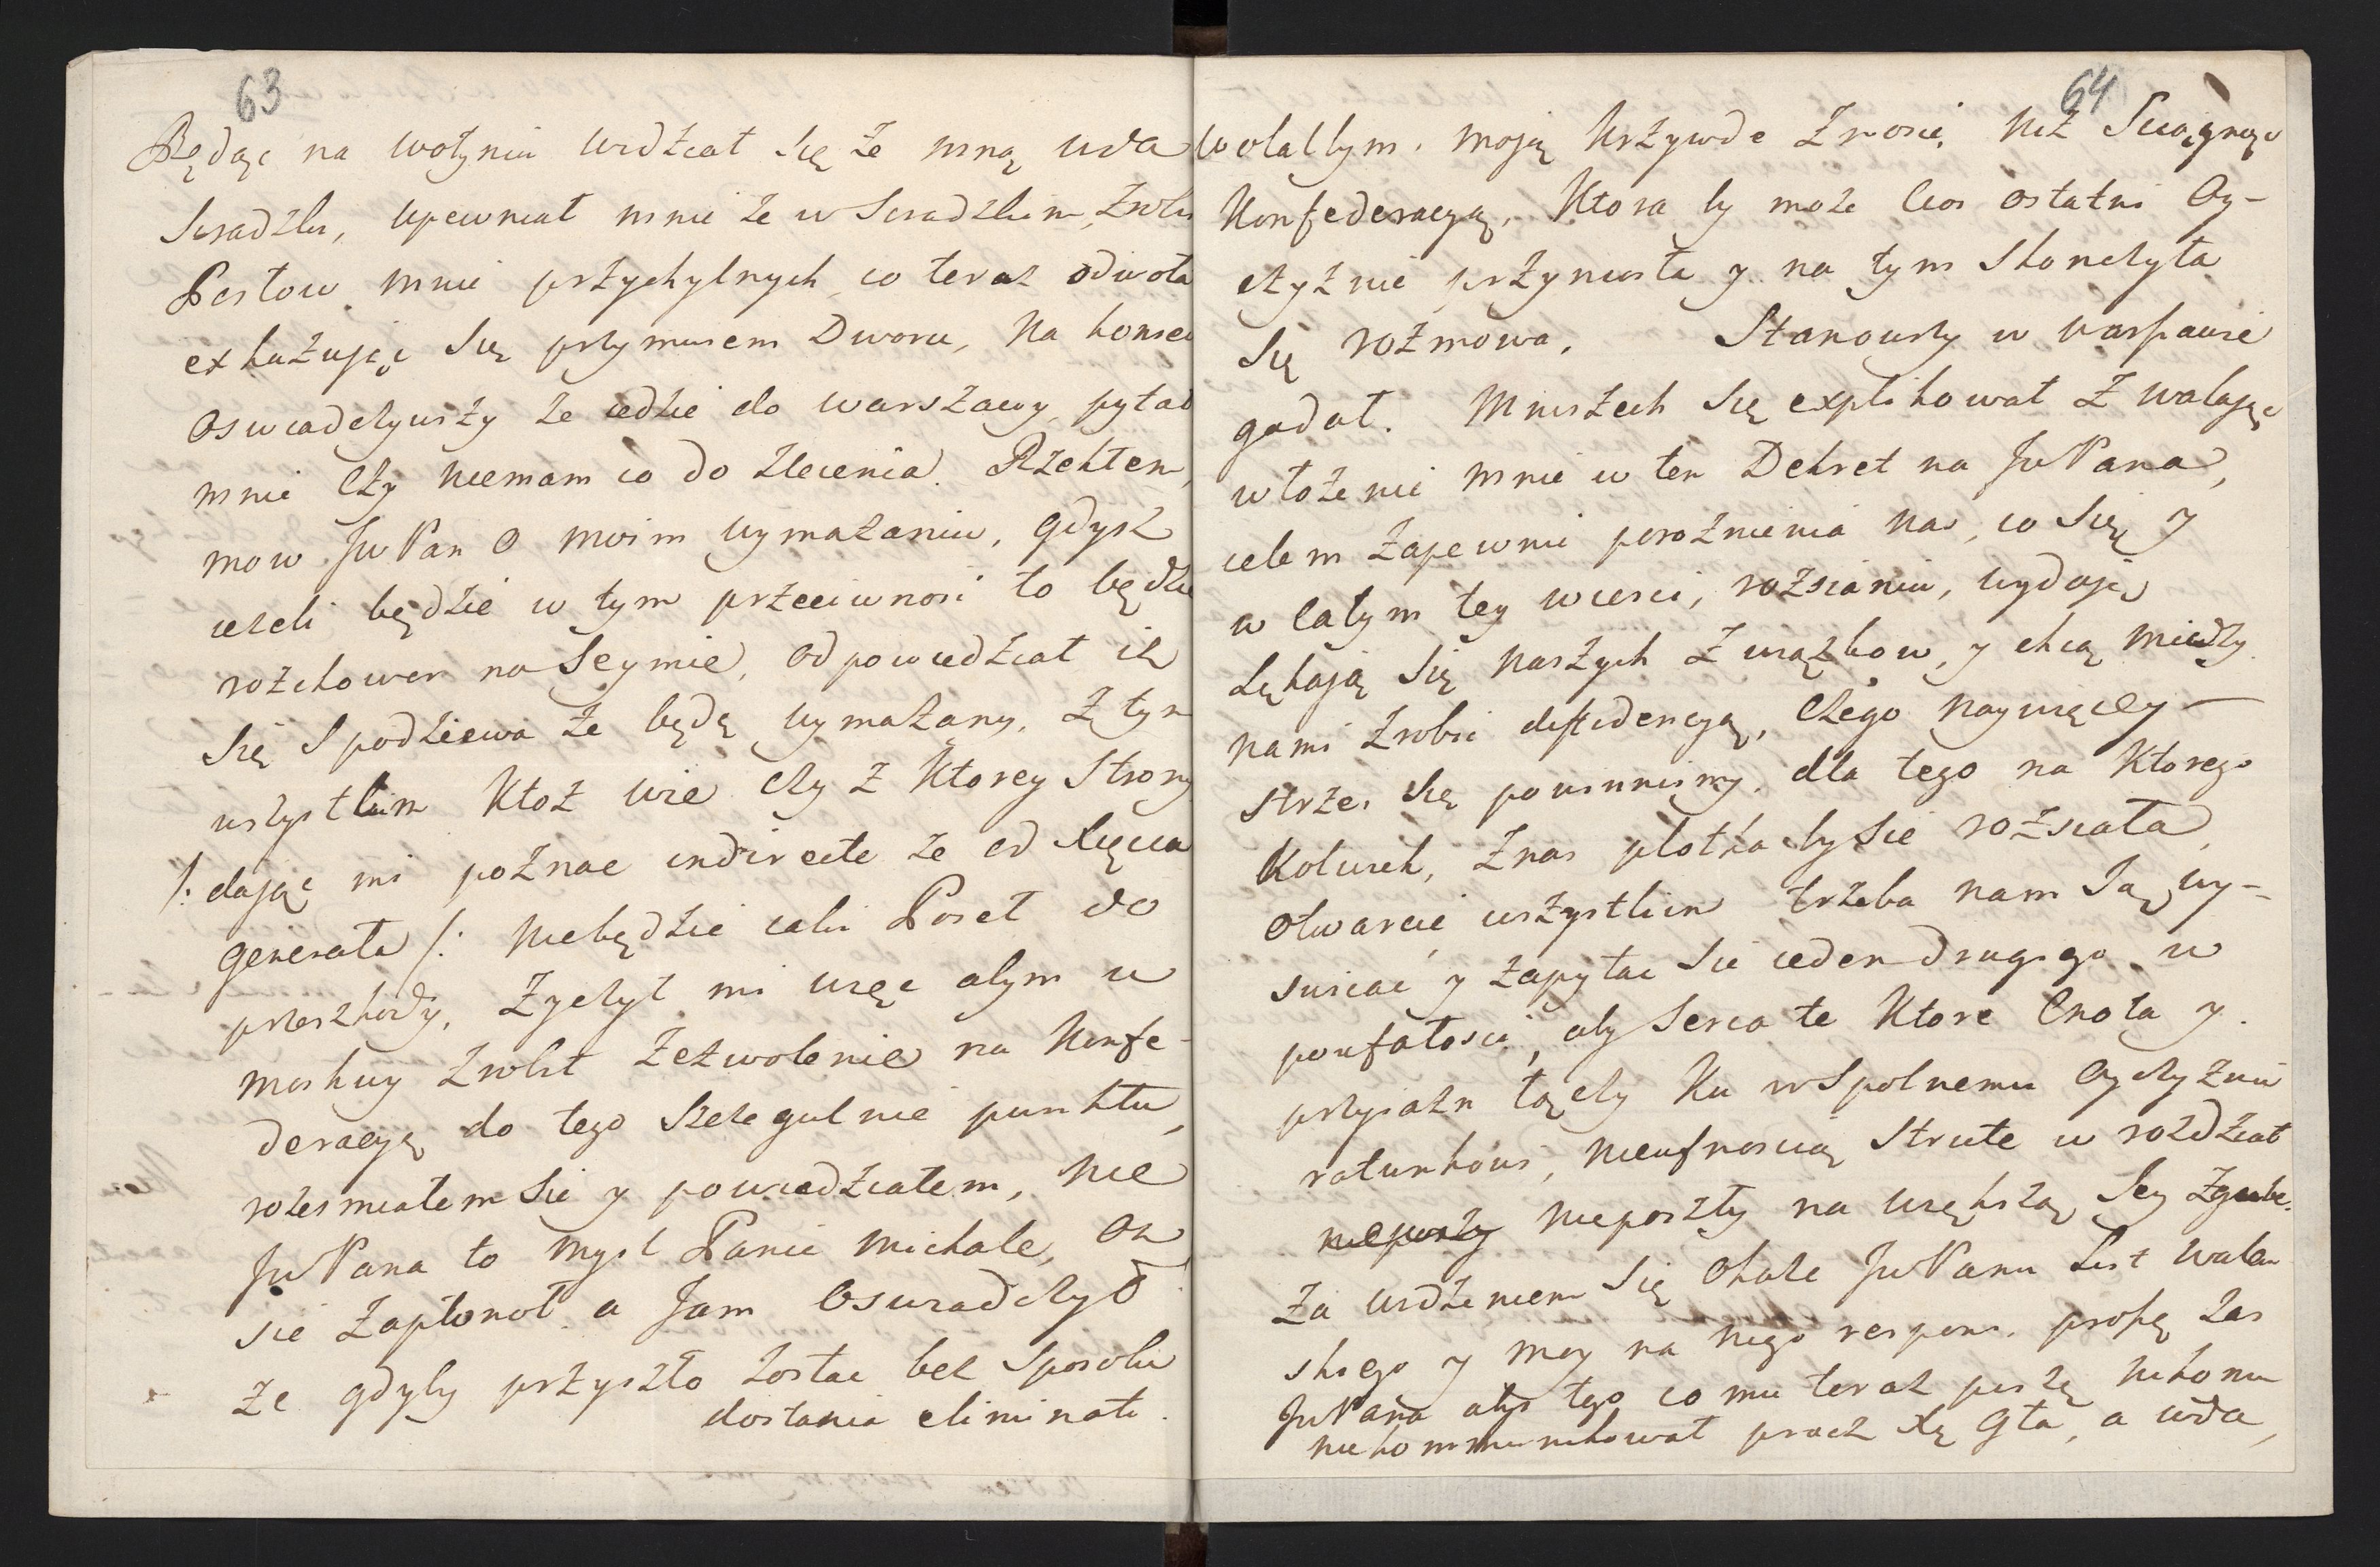 63
Będąc na wołyniu widział się ze mną uda
Siradzki, upewniał mnie że w Siradzkim, zrobi
Posłow mnie przychylnych co teraz odwoła
exkuzując się przymusem Dworu, Na koniec
oswiadczywszy że iedzie do warszawy pytał
mnie czy niemam co do zlecenia. Rzekłem,
mow JwPan o moim wymazaniu, gdysz
ieżeli będzie w tym przeciwnosć to będzie
rozchower na Seymie, odpowiedział iż
się spodziewa że będę wymazany, z tym
wszystkim ktoż wie czy z ktorey strony
/: dając mi poznac indirecte że od Xięcia
generała /: niebędzie iaki Poseł do
przeszkody, Zyczył mi więc abym u
moskwy zrobił zezwolenie na konfe-
deracyę do tego szczegulnie punktu,
rozesmiałem sie y powiedziałem, nie
JwPana to mysl Panie Michale, on
sie zapłonoł a Jam oswiadczył
że gdyby przyszło zostac bez sposobu
dostania eliminaty.
64
wolałbym moją krzywdę znosić, niż sciągnąć
Konfederacyą, ktora by może cios ostatni Oy-
czyznie przyniosła y na tym skonczyła
się rozmowa. Stanowszy w warszawie
gadał. Mniszech się explikował zwalając
włożenie mnie w ten Dekret na JwPana,
celem zapewnie poroznienia nas, co się y
w całym tey wiesci, rozsianiu, wydaje
Lękają się naszych związkow, y chcą miedzy
nami zrobic diffidencyą, czego naywięcey
strzec się powinnismy. dla tego na ktorego
kolwiek, z nas plotka by sie rozsiała,
otwarcie wszystkim trzeba nam Ją wy-
swiecać y zapytac sie ieden drugiego w
poufałosci, aby serca te ktore cnota y
przyiazn łączy ku wspolnemu Oyczyznie
ratunkowi, nieufnoscią strute w rozdział
nieposzły na większą Jey zgubę.
Za widzeniem się okaże JwPanu List walew
skiego y moy na niego respons. proszę zas
JwPana abys tego co mu teraz piszę nikomu
niekommunikował procz Xę Gła, a uda,